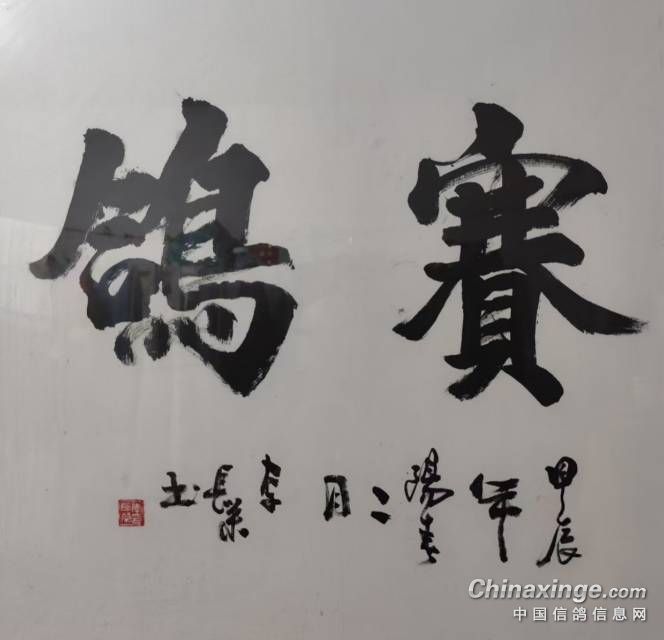 賽鴿
甲辰年陽春二月李長榮书
Chinaxinge.com
中国信鸽信息网